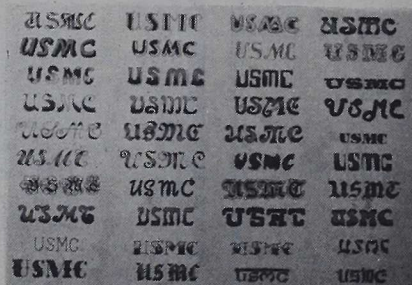 USMC USMC USMC USMC
USMC USMC USMC USMC
USMC USMC USMC USMC
USMC USMC USMC USMC
USMC USMC USMC USMC
USMC USMC USMC USMC
USMC USMC USMC USMC
USMC USMC USMC USMC
USMC USMC USMC USMC
USMC USMC USMC USMC